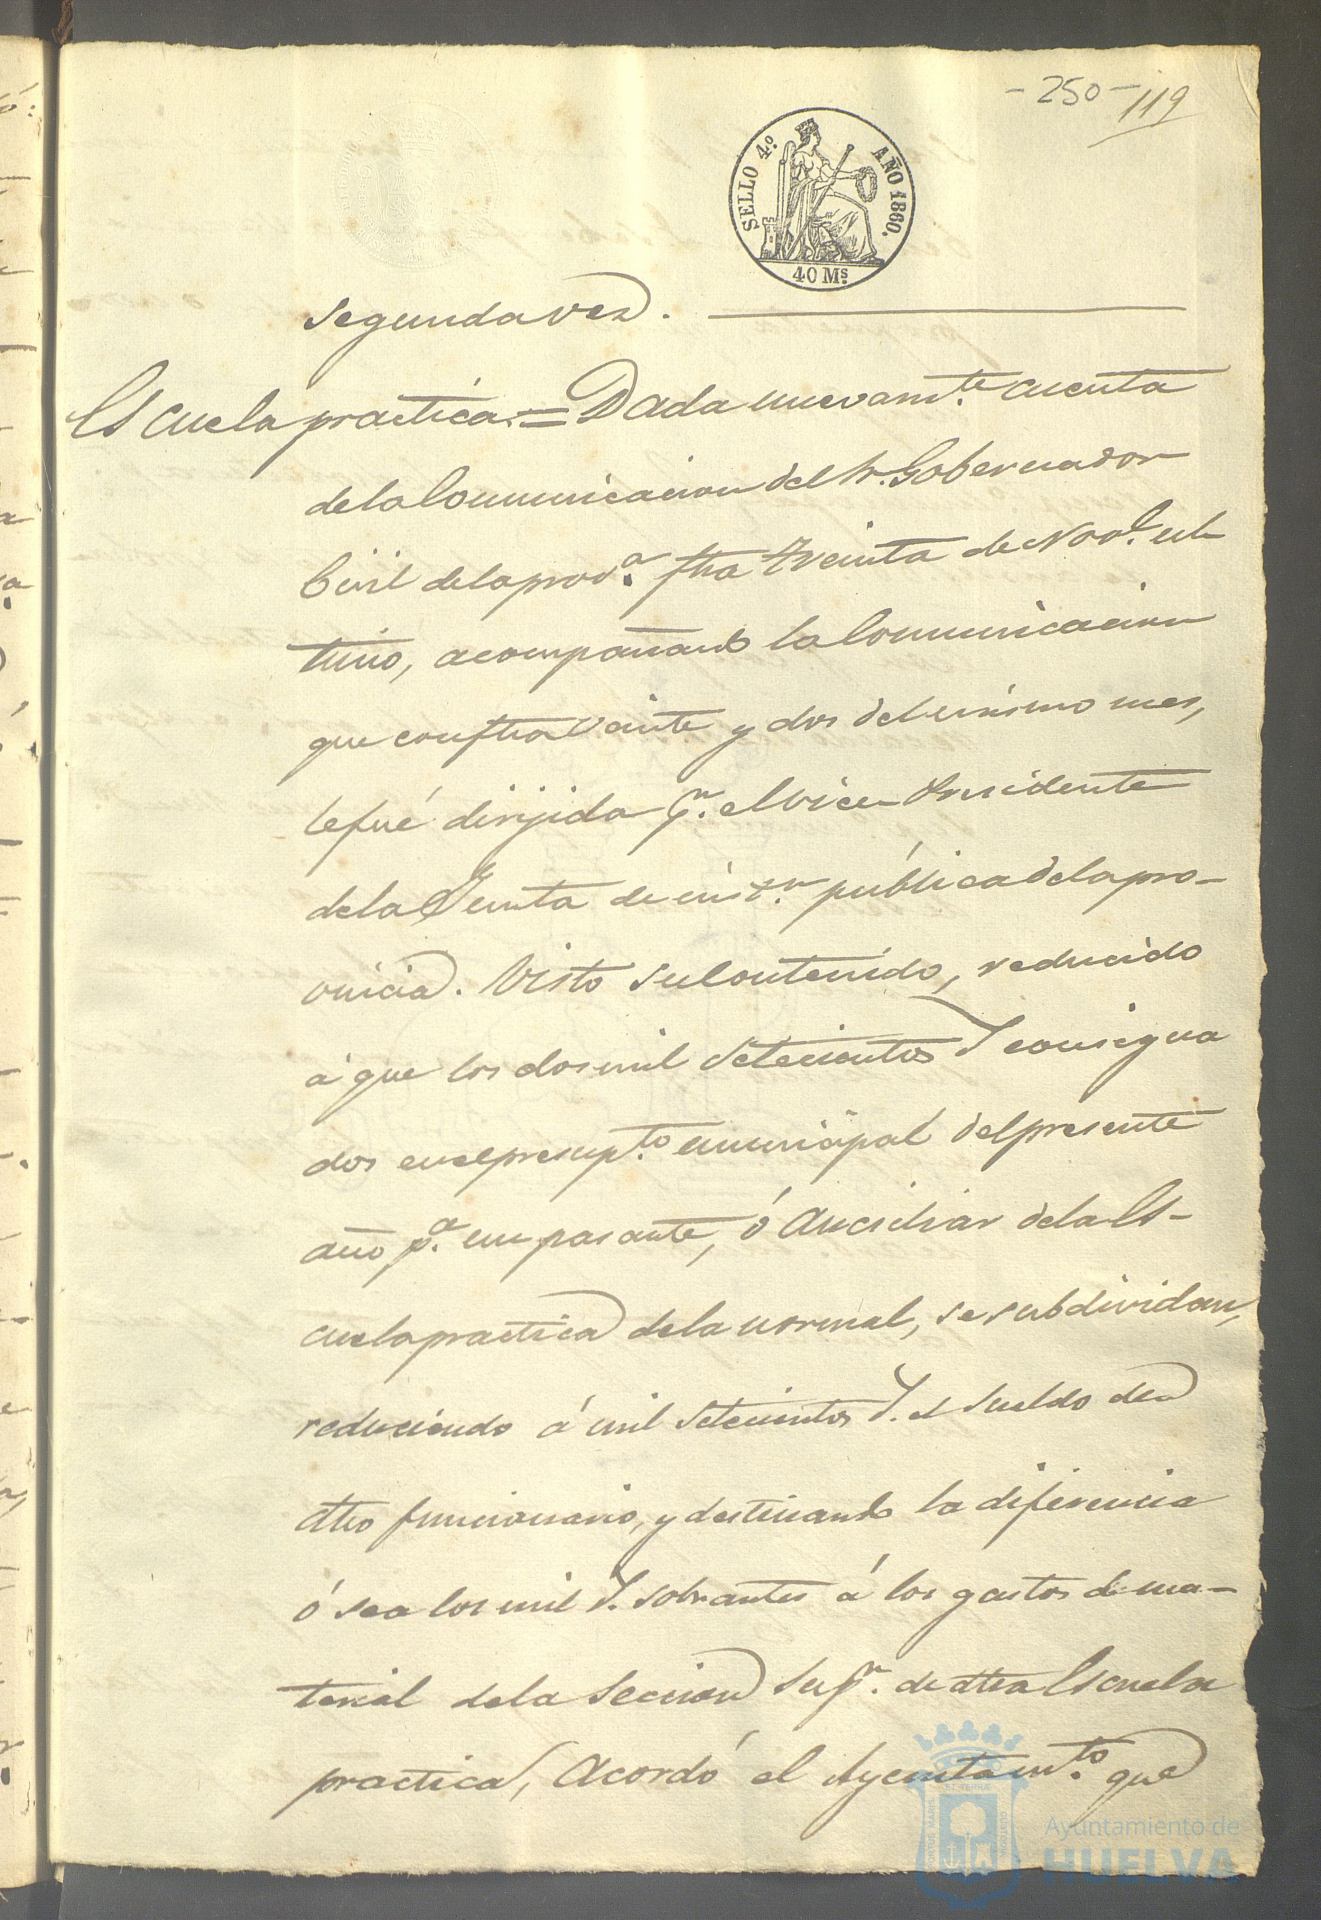 - 250 - 119
SELLO 4º AÑO 1860.
40 Ms.
segunda vez.
Escuela practica. = Dada nuevamte. cuenta
de la Comunicacion del Sr. Gobernador
Civil de la prova. fha treinta de Novê. ul-
timo, acompañando la Comunicacion
que con fha veinte y dos del mismo mes,
le fué dirijida pr. el vice-Presidente
de la Junta de instn. pública de la pro-
vincia. Visto su Contenido, reducido
á que los dos mil setecientos consigna
dos en el presupto. municipal del presente
año pa. un pasante, ó Aucsiliar de la Es-
cuela practica de la normal, se subdividan,
reduciendo á mil setecientos el sueldo de
dho funcionario, y destinando la diferencia
ó sea los mil sobrantes á los gastos de ma-
terial de la Seccion Supr. de dha Escuela
practica, Acordó el Ayuntamto. que
Ayuntamiento de
HUELVA